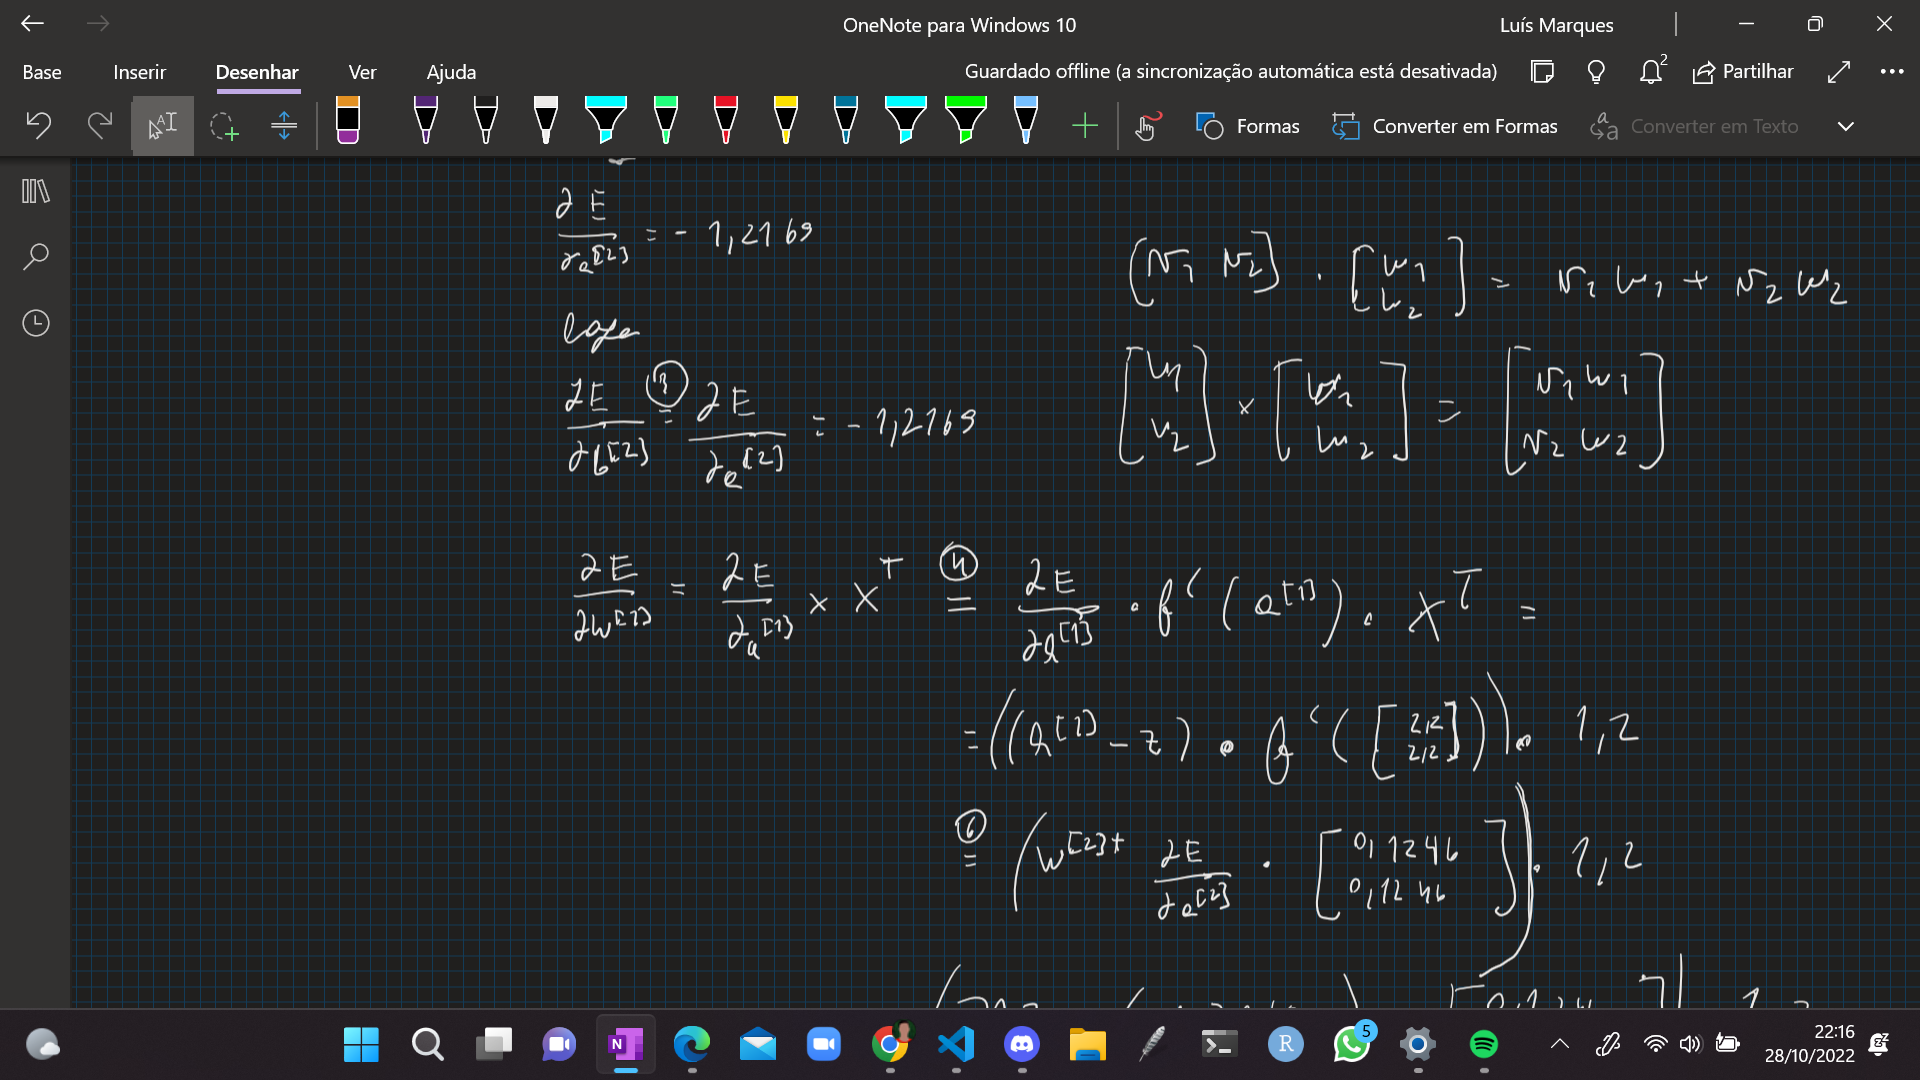 OneNote para Windows 10
Luís Marques
Base Inserir Desenhar Ver Ajuda
Guardado offline (a sincronização automática está desativada)
2
Partilhar
Formas
Converter em Formas
Converter em Texto
∂E/∂a[2] = - 1,2169
(v1 v2] · [w1 w2] = v1 w1 + v2 w2
logo
∂E/∂b[2] =③ ∂E/∂a[2] = - 1,2169
[v1 v2] × [w1 w2] = [v1 w1 v2 w2]
∂E/∂w[1] = ∂E/∂a[1] × X^T =④ ∂E/∂l[1] · f'(a[1]) · X^T =
- z) · f'([2,2 2,2])) · 1,2
=⑥ (w[2]T ∂E/∂a[2] · [0,1246 0,1246]) · 1,2
5
22:16
28/10/2022